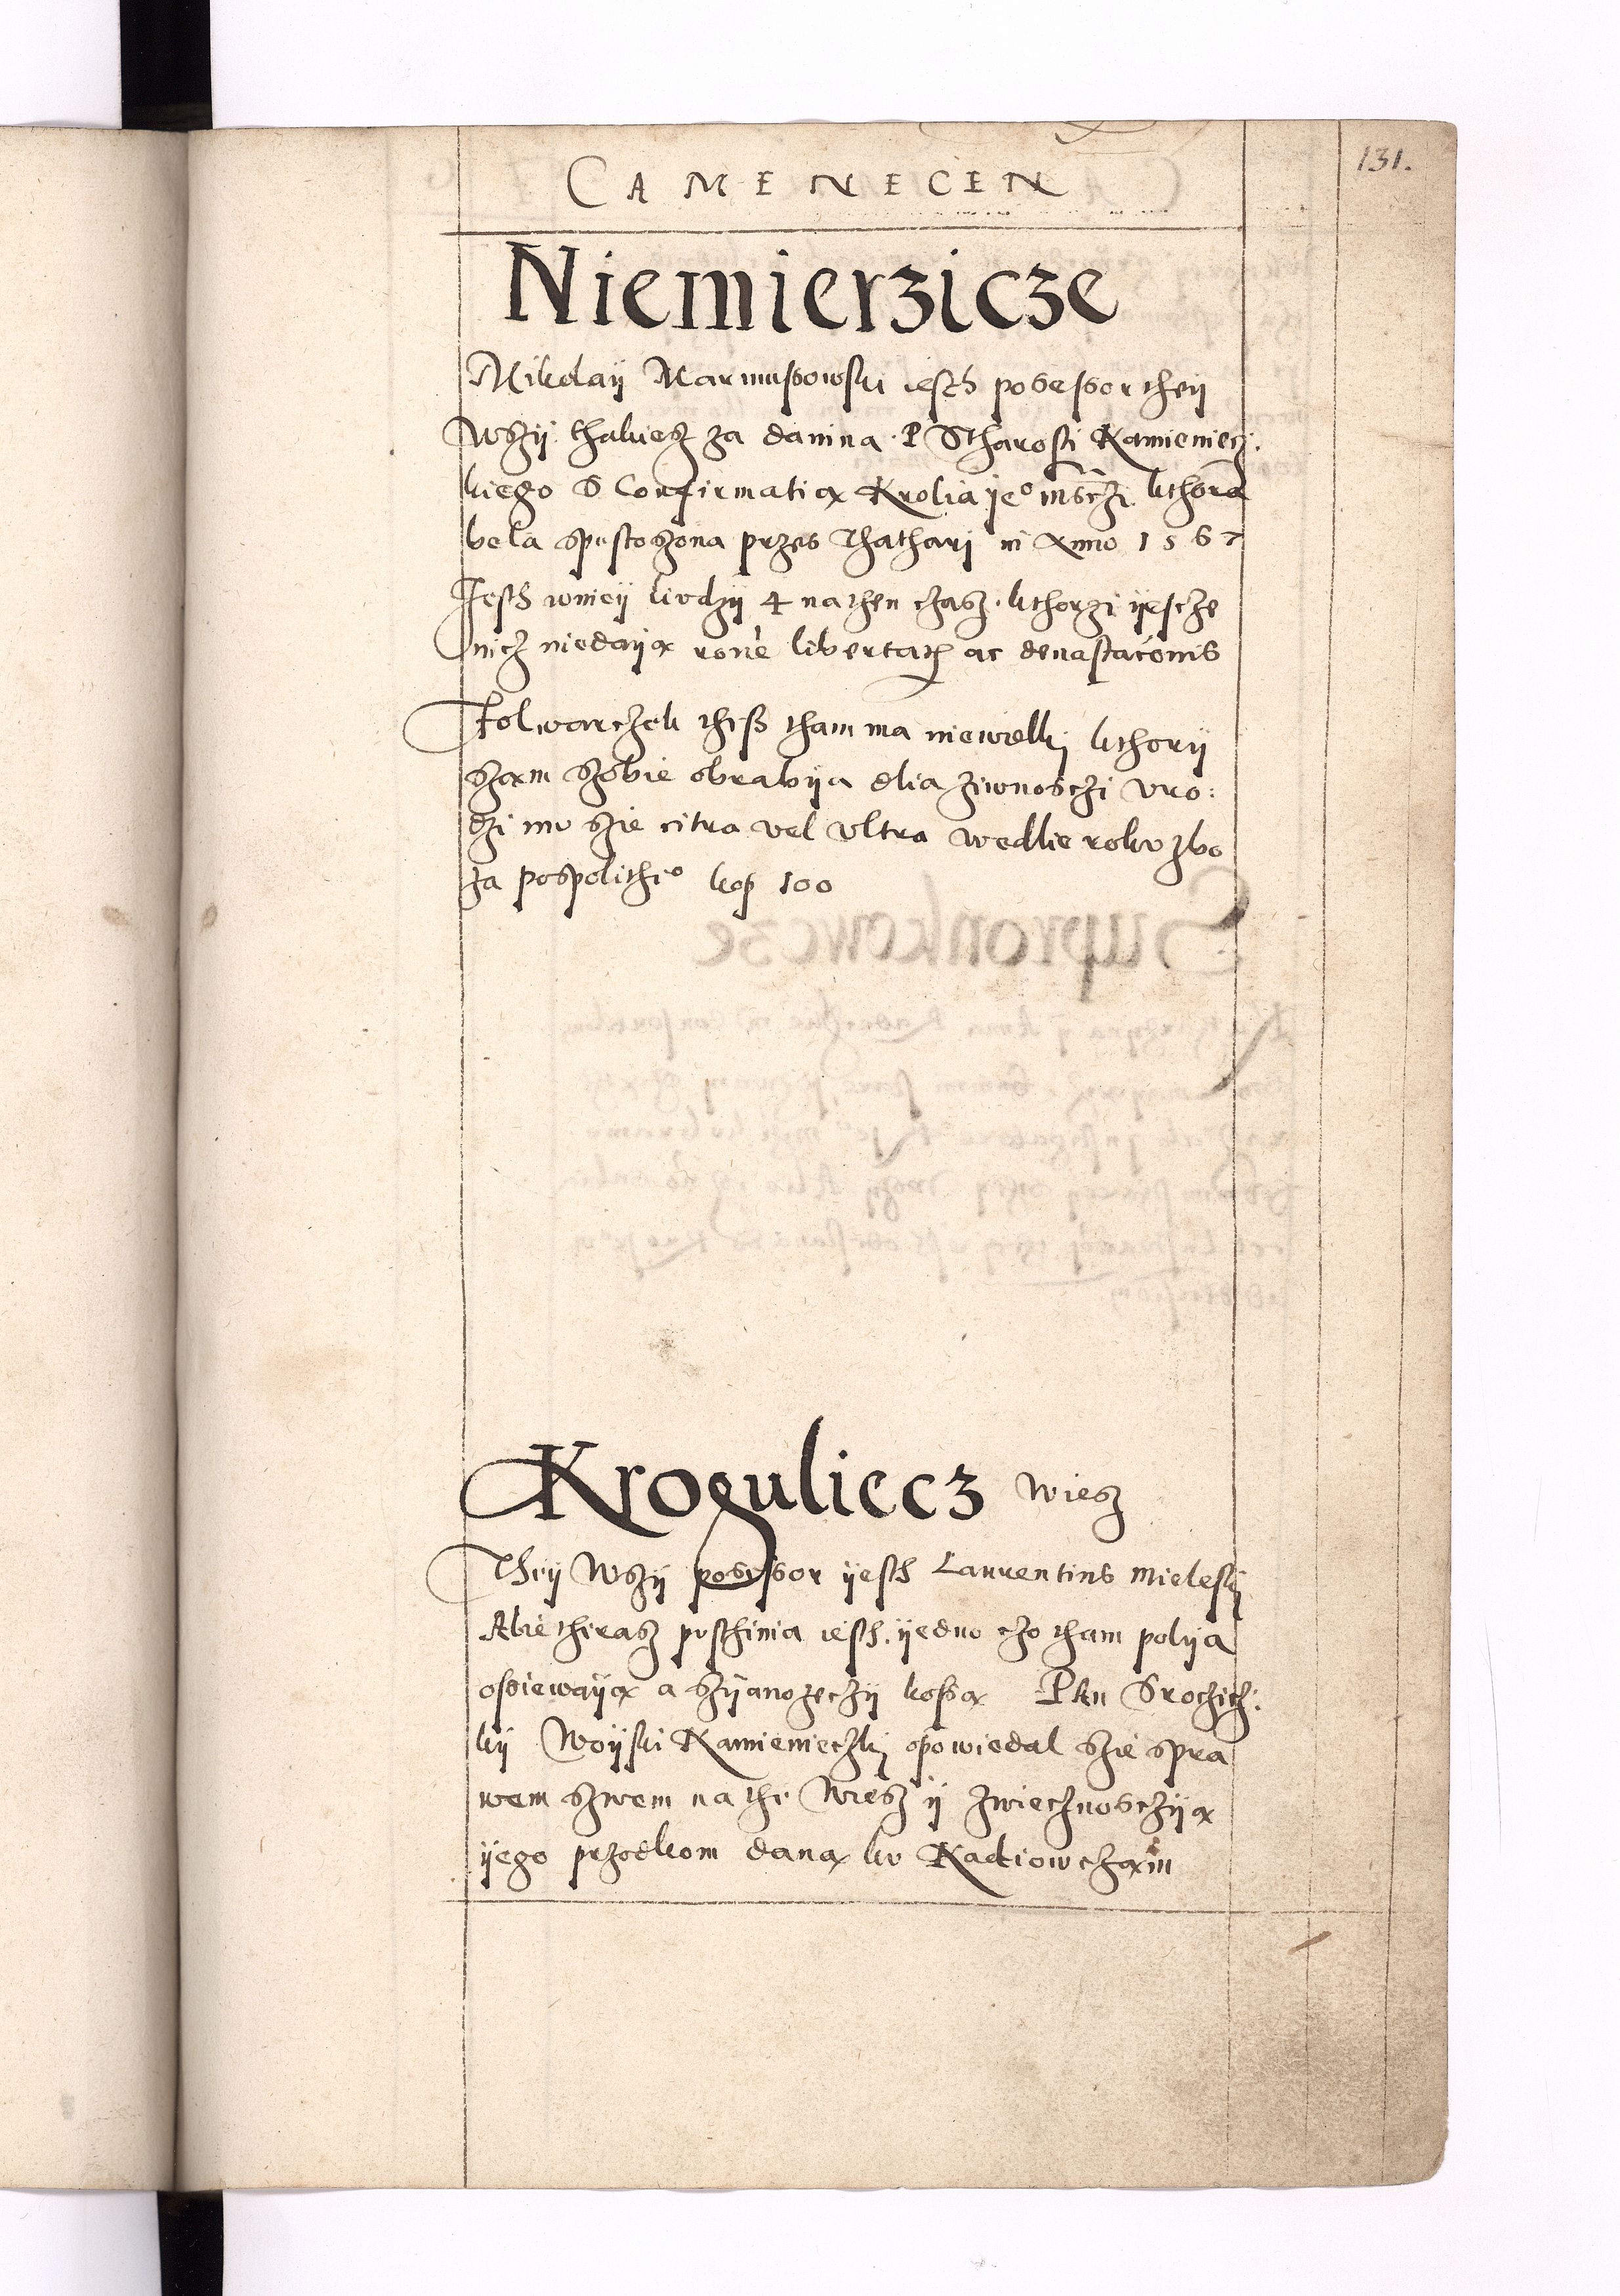 131.
CAMENECEN
Niemierzicze
Mikolaij Marmussowski iesth possessor theij
Wszij thakiesz za danina P Stharosti Kamieniecz:
kiego S Confirmatią Krolia ije° msczi kthora
bela spustoszona przes Thathari in Anno 1567
Jesth wnieij liudzij 4 na then czasz kthorzi ijescze
nicz niedaiją rone libertatis ac devastaconis
Folwarczek thesz tham ma niewelkj kthorij
szam szobie obrabija dlia ziwnosczi Vro:
dzi mu szie citra vel Vltra wedlie roku zbo
za pospolithe° kop 100
Kroguliecz Wiesz
Theij Wszij possessor ijesth Laurentius Mieleskj
Alie theraz pusthinia iesth, ijedno czo tham polija
ossiewaiją a szijanozeczij kossą Pan Srochicz:
kij Woijski Kamienieczkj opowiedal szie spra
wem szwem na the Wiesz ij zwiecznosczij ą
ijego przodkom daną ku Kadiowczam